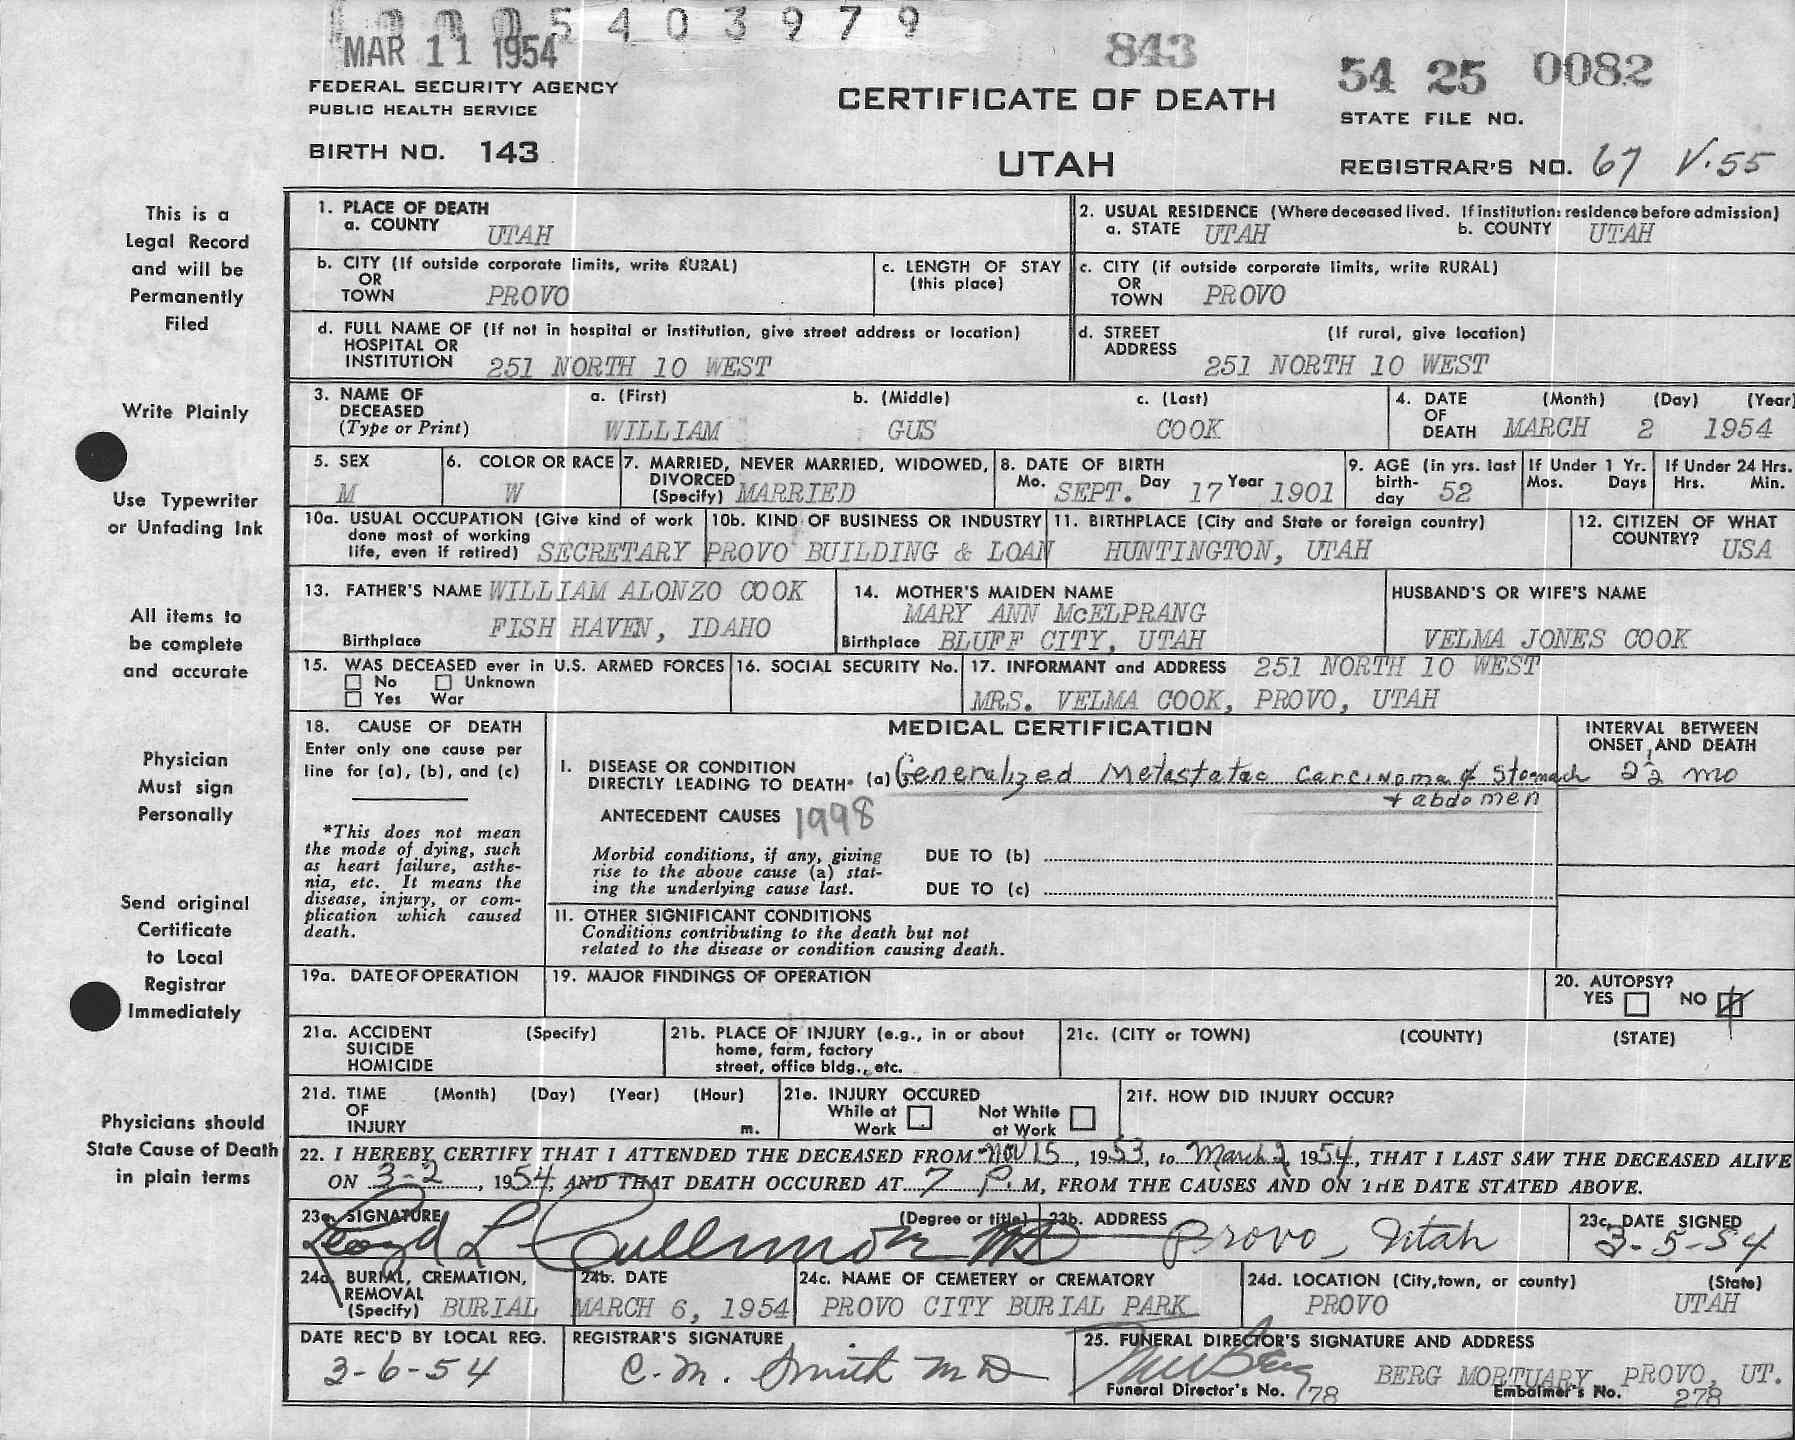 5 4 0 3 9 7 9
MAR 11 1954
843
54 25 0082
FEDERAL SECURITY AGENCY
PUBLIC HEALTH SERVICE
CERTIFICATE OF DEATH
STATE FILE NO.
BIRTH NO. 143
UTAH
REGISTRAR'S NO. 67 V.55
This is a
Legal Record
and will be
Permanently
Filed
Write Plainly
Use Typewriter
or Unfading Ink
All items to
be complete
and accurate
Physician
Must sign
Personally
Send original
Certificate
to Local
Registrar
Immediately
Physicians should
State Cause of Death
in plain terms
1. PLACE OF DEATH
a. COUNTY UTAH
2. USUAL RESIDENCE (Where deceased lived. If institution: residence before admission)
a. STATE UTAH b. COUNTY UTAH
b. CITY (If outside corporate limits, write RURAL)
OR
TOWN PROVO
c. LENGTH OF STAY
(this place)
c. CITY (if outside corporate limits, write RURAL)
OR
TOWN PROVO
d. FULL NAME OF (If not in hospital or institution, give street address or location)
HOSPITAL OR
INSTITUTION 251 NORTH 10 WEST
d. STREET (If rural, give location)
ADDRESS 251 NORTH 10 WEST
3. NAME OF a. (First) b. (Middle) c. (Last)
DECEASED
(Type or Print) WILLIAM GUS COOK
4. DATE (Month) (Day) (Year)
OF
DEATH MARCH 2 1954
5. SEX
M
6. COLOR OR RACE
W
7. MARRIED, NEVER MARRIED, WIDOWED,
DIVORCED
(Specify) MARRIED
8. DATE OF BIRTH
Mo. SEPT. Day 17 Year 1901
9. AGE (in yrs. last
birth-
day 52
If Under 1 Yr.
Mos. Days
If Under 24 Hrs.
Hrs. Min.
10a. USUAL OCCUPATION (Give kind of work
done most of working
life, even if retired) SECRETARY
10b. KIND OF BUSINESS OR INDUSTRY
PROVO BUILDING & LOAN
11. BIRTHPLACE (City and State or foreign country)
HUNTINGTON, UTAH
12. CITIZEN OF WHAT
COUNTRY? USA
13. FATHER'S NAME WILLIAM ALONZO COOK
Birthplace FISH HAVEN, IDAHO
14. MOTHER'S MAIDEN NAME
MARY ANN McELPRANG
Birthplace BLUFF CITY, UTAH
HUSBAND'S OR WIFE'S NAME
VELMA JONES COOK
15. WAS DECEASED ever in U.S. ARMED FORCES
No Unknown
Yes War
16. SOCIAL SECURITY No.
17. INFORMANT and ADDRESS 251 NORTH 10 WEST
MRS. VELMA COOK, PROVO, UTAH
18. CAUSE OF DEATH
Enter only one cause per
line for (a), (b), and (c)
*This does not mean
the mode of dying, such
as heart failure, asthe-
nia, etc. It means the
disease, injury, or com-
plication which caused
death.
MEDICAL CERTIFICATION
INTERVAL BETWEEN
ONSET AND DEATH
I. DISEASE OR CONDITION
DIRECTLY LEADING TO DEATH* (a) Generalized Metastatac Carcinoma of Stomach
+ abdomen
mo
ANTECEDENT CAUSES 1998
Morbid conditions, if any, giving
rise to the above cause (a) stat-
ing the underlying cause last.
DUE TO (b)
DUE TO (c)
II. OTHER SIGNIFICANT CONDITIONS
Conditions contributing to the death but not
related to the disease or condition causing death.
19a. DATE OF OPERATION
19. MAJOR FINDINGS OF OPERATION
20. AUTOPSY?
YES NO
21a. ACCIDENT (Specify)
SUICIDE
HOMICIDE
21b. PLACE OF INJURY (e.g., in or about
home, farm, factory
street, office bldg., etc.
21c. (CITY or TOWN) (COUNTY) (STATE)
21d. TIME (Month) (Day) (Year) (Hour)
OF
INJURY m.
21e. INJURY OCCURED
While at Not While
Work at Work
21f. HOW DID INJURY OCCUR?
22. I HEREBY CERTIFY THAT I ATTENDED THE DECEASED FROM Nov 15, 1953, to March 2, 1954, THAT I LAST SAW THE DECEASED ALIVE
ON 3-2, 1954, AND THAT DEATH OCCURED AT 7 P.M, FROM THE CAUSES AND ON THE DATE STATED ABOVE.
23a. SIGNATURE (Degree or title)
Lloyd L. Cullimore MD
23b. ADDRESS
Provo, Utah
23c. DATE SIGNED
3-5-54
24a. BURIAL, CREMATION,
REMOVAL
(Specify) BURIAL
24b. DATE
MARCH 6, 1954
24c. NAME OF CEMETERY or CREMATORY
PROVO CITY BURIAL PARK
24d. LOCATION (City, town, or county) (State)
PROVO UTAH
DATE REC'D BY LOCAL REG.
3-6-54
REGISTRAR'S SIGNATURE
C. M. Smith MD
25. FUNERAL DIRECTOR'S SIGNATURE AND ADDRESS
BERG MORTUARY PROVO, UT.
Funeral Director's No. 178 Embalmer's No. 278